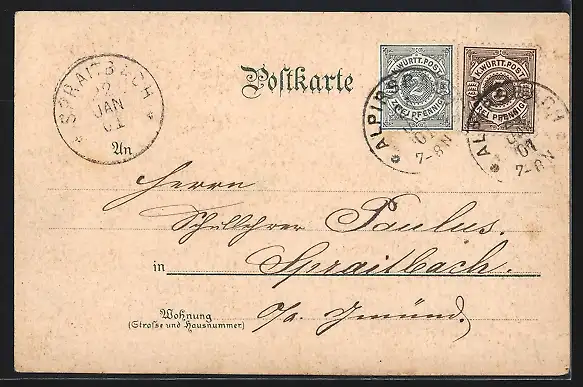 K. WÜRTT. POST
2
ZWEI PFENNIG
K. WÜRTT. POST
PFENNIG
Postkarte
SPRAITBACH
12
JAN
01
ALPIRSBACH
01
7-8N
ALPIRSBACH
JAN
01
7-8N
An
Herrn
Schullehrer Paulus.
in Spraitbach.
O/A. Gmünd.
Wohnung
(Strasse und Hausnummer)